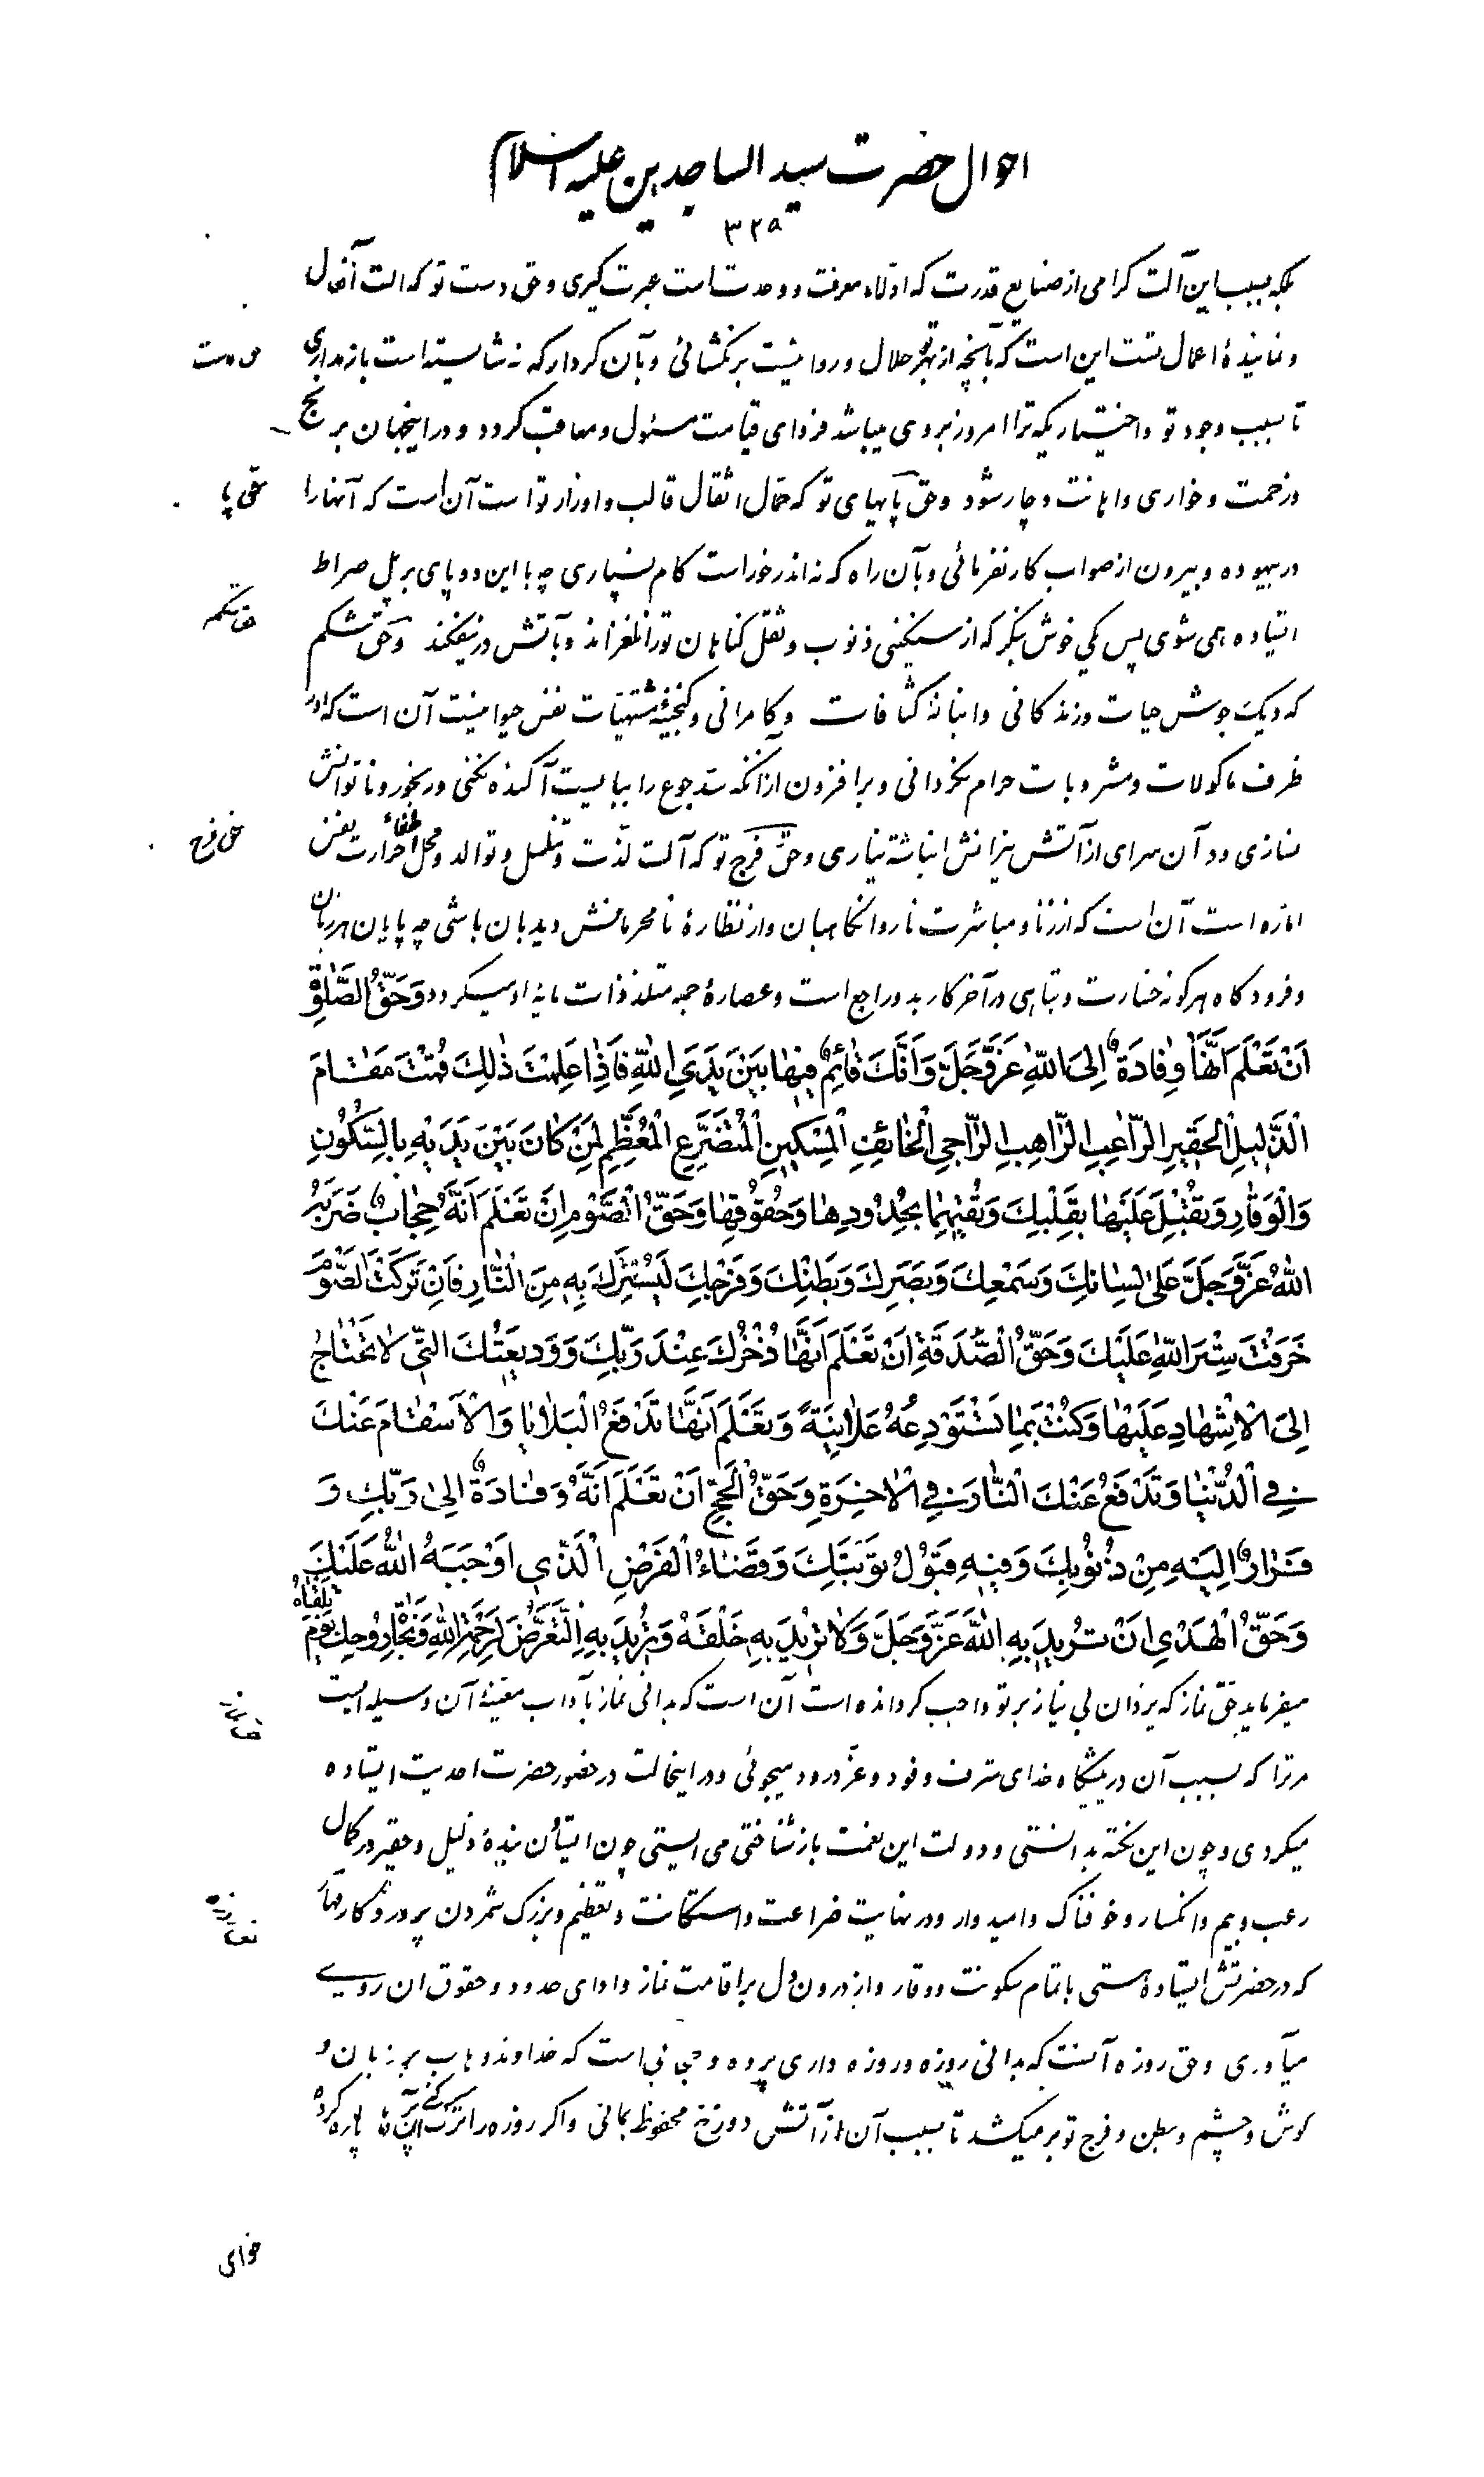 احوال حضرت سید الساجدین علیه السلام
۳۲۵
بلکه بسبب این آلت گرامی از صنایع قدرت که ادلّاء معرفت و وحدت است عبرت گیری و حق دست تو که الت افعال
و نمایندهٔ اعمال تست این است که بآنچه از بهر تو حلال و روا نیست بر نگشائی و بآن کردار که نه شایسته است باز نداری
حق دست
تا بسبب وجود تو و اختیاریکه ترا امروز بروی میباشد فردای قیامت مسئول و معاقب گردد و در اینجهان برنج
و زحمت و خواری و اهانت دچار شود و حق پایهای تو که حمّال اثقال قالب و اوزار تو است آن است که آنها را
حق پا
در بیهوده و بیرون از صواب کار نفرمائی و بآن راه که نه اندر خور است گام نسپاری چه با این دو پای بر پل صراط
ایستاده همی شوی پس یکی خوش بنگر که از سنگینی ذنوب و ثقل گناهان تو را نلغزاند و بآتش در نیفکند و حق شکم
حق شکم
که دیک جوش حیات و زندگانی و انبانهٔ کثافات و کامرانی و گنجینهٔ مشتهیات نفس حیوانیت آن است که او را
ظرف ماکولات و مشروبات حرام نگردانی و بر افزون از آنکه سدّ جوع را ببایست آکنده نکنی و رنجور و ناتوانش
نسازی و در آن سرای از آتش نیرانش انباشته نیاری و حقّ فرج تو که آلت لذّت و تناسل و توالد و محل اطفاء حرارت نفس
حق فرج
اماره است آن است که از زنا و مباشرت ناروا نگاهبان و از نظارهٔ نامحرمانش دیدبان باشی چه پایان هر زیان
و فرودگاه هرگونه خسارت و تباهی در آخر کار بدو راجع است و عصارهٔ جمه متلذذات مایهٔ او میگردد وَحَقُّ الصَّلٰوةِ
اَنْ تَعْلَمَ اَنَّهَا وِفَادَةٌ اِلَى اللّٰهِ عَزَّ وَجَلَّ وَاَنَّكَ قَائِمٌ فِيهَا بَيْنَ يَدَيِ اللّٰهِ فَاِذَا عَلِمْتَ ذٰلِكَ قُمْتَ مَقَامَ
الْذَّلِيلِ الْحَقِيرِ الرَّاغِبِ الرَّاهِبِ الرَّاجِي الْخَائِفِ الْمِسْكِينِ الْمُتَضَرِّعِ الْمُعَظِّمِ لِمَنْ كَانَ بَيْنَ يَدَيْهِ بِالسُّكُونِ
وَالْوَقَارِ وَتُقْبِلَ عَلَيْهَا بِقَلْبِكَ وَتُقِيمَهَا بِحُدُودِهَا وَحُقُوقِهَا وَحَقُّ الصَّوْمِ اَنْ تَعْلَمَ اَنَّهُ حِجَابٌ ضَرَبَهُ
اللّٰهُ عَزَّ وَجَلَّ عَلَى لِسَانِكَ وَسَمْعِكَ وَبَصَرِكَ وَبَطْنِكَ وَفَرْجِكَ لِيَسْتُرَكَ بِهِ مِنَ النَّارِ فَاِنْ تَرَكْتَ الصَّوْمَ
خَرَقْتَ سِتْرَ اللّٰهِ عَلَيْكَ وَحَقُّ الصَّدَقَةِ اَنْ تَعْلَمَ اَنَّهَا ذُخْرُكَ عِنْدَ رَبِّكَ وَوَدِيعَتُكَ الَّتِي لَا تَحْتَاجُ
اِلَى الْاِشْهَادِ عَلَيْهَا وَكُنْتَ بِمَا تَسْتَوْدِعُهُ عَلَانِيَةً وَتَعْلَمَ اَنَّهَا تَدْفَعُ الْبَلَايَا وَالْاَسْقَامَ عَنْكَ
فِي الدُّنْيَا وَتَدْفَعُ عَنْكَ النَّارَ فِي الْاٰخِرَةِ وَحَقُّ الْحَجِّ اَنْ تَعْلَمَ اَنَّهُ وِفَادَةٌ اِلَى رَبِّكَ وَ
فِرَارٌ اِلَيْهِ مِنْ ذُنُوبِكَ وَفِيهِ قَبُولُ تَوْبَتِكَ وَقَضَاءُ الْفَرْضِ الَّذِي اَوْجَبَهُ اللّٰهُ عَلَيْكَ
وَحَقُّ الْهَدْيِ اَنْ تُرِيدَ بِهِ اللّٰهَ عَزَّ وَجَلَّ وَلَا تُرِيدَ بِهِ خَلْقَهُ وَتُرِيدَ بِهِ التَّعَرُّضَ لِرَحْمَةِ اللّٰهِ وَنَجَاةِ رُوحِكَ يَوْمَ تَلْقَاهُ
میفرماید حقّ نماز که یزدان بی نیاز بر تو واجب گردانده است آن است که بدانی نماز بآداب معیّنهٔ آن وسیله ایست
حق نماز
مر ترا که بسبب آن در پیشگاه خدای شرف وفود و عزّ ورود میجوئی و در اینحالت در حضور حضرت احدیت ایستاده
میگردی و چون این نکته بدانستی و دولت این نعمت باز شناختی می ایستی چون ایستادن بندهٔ ذلیل و حقیر در کمال
رعب و بیم و انکسار و خوفناک و امیدوار و در نهایت ضراعت و استکانت و تعظیم و بزرگ شمردن پروردگار قهار
که در حضرتش ایستادهٔ هستی با تمام سکونت و وقار و از درون دل بر اقامت نماز و ادای حدود و حقوق ان روی
حق روزه
میآوری و حق روزه آنست که بدانی روزه و روزه داری پرده و حجابی است که خداوند وهاب بر زبان و
گوش و چشم و بطن و فرج تو بر میکشد تا بسبب آن از آتش دوزخ محفوظ بمانی و اگر روزه را ترک کنی پاره کرده
خدای